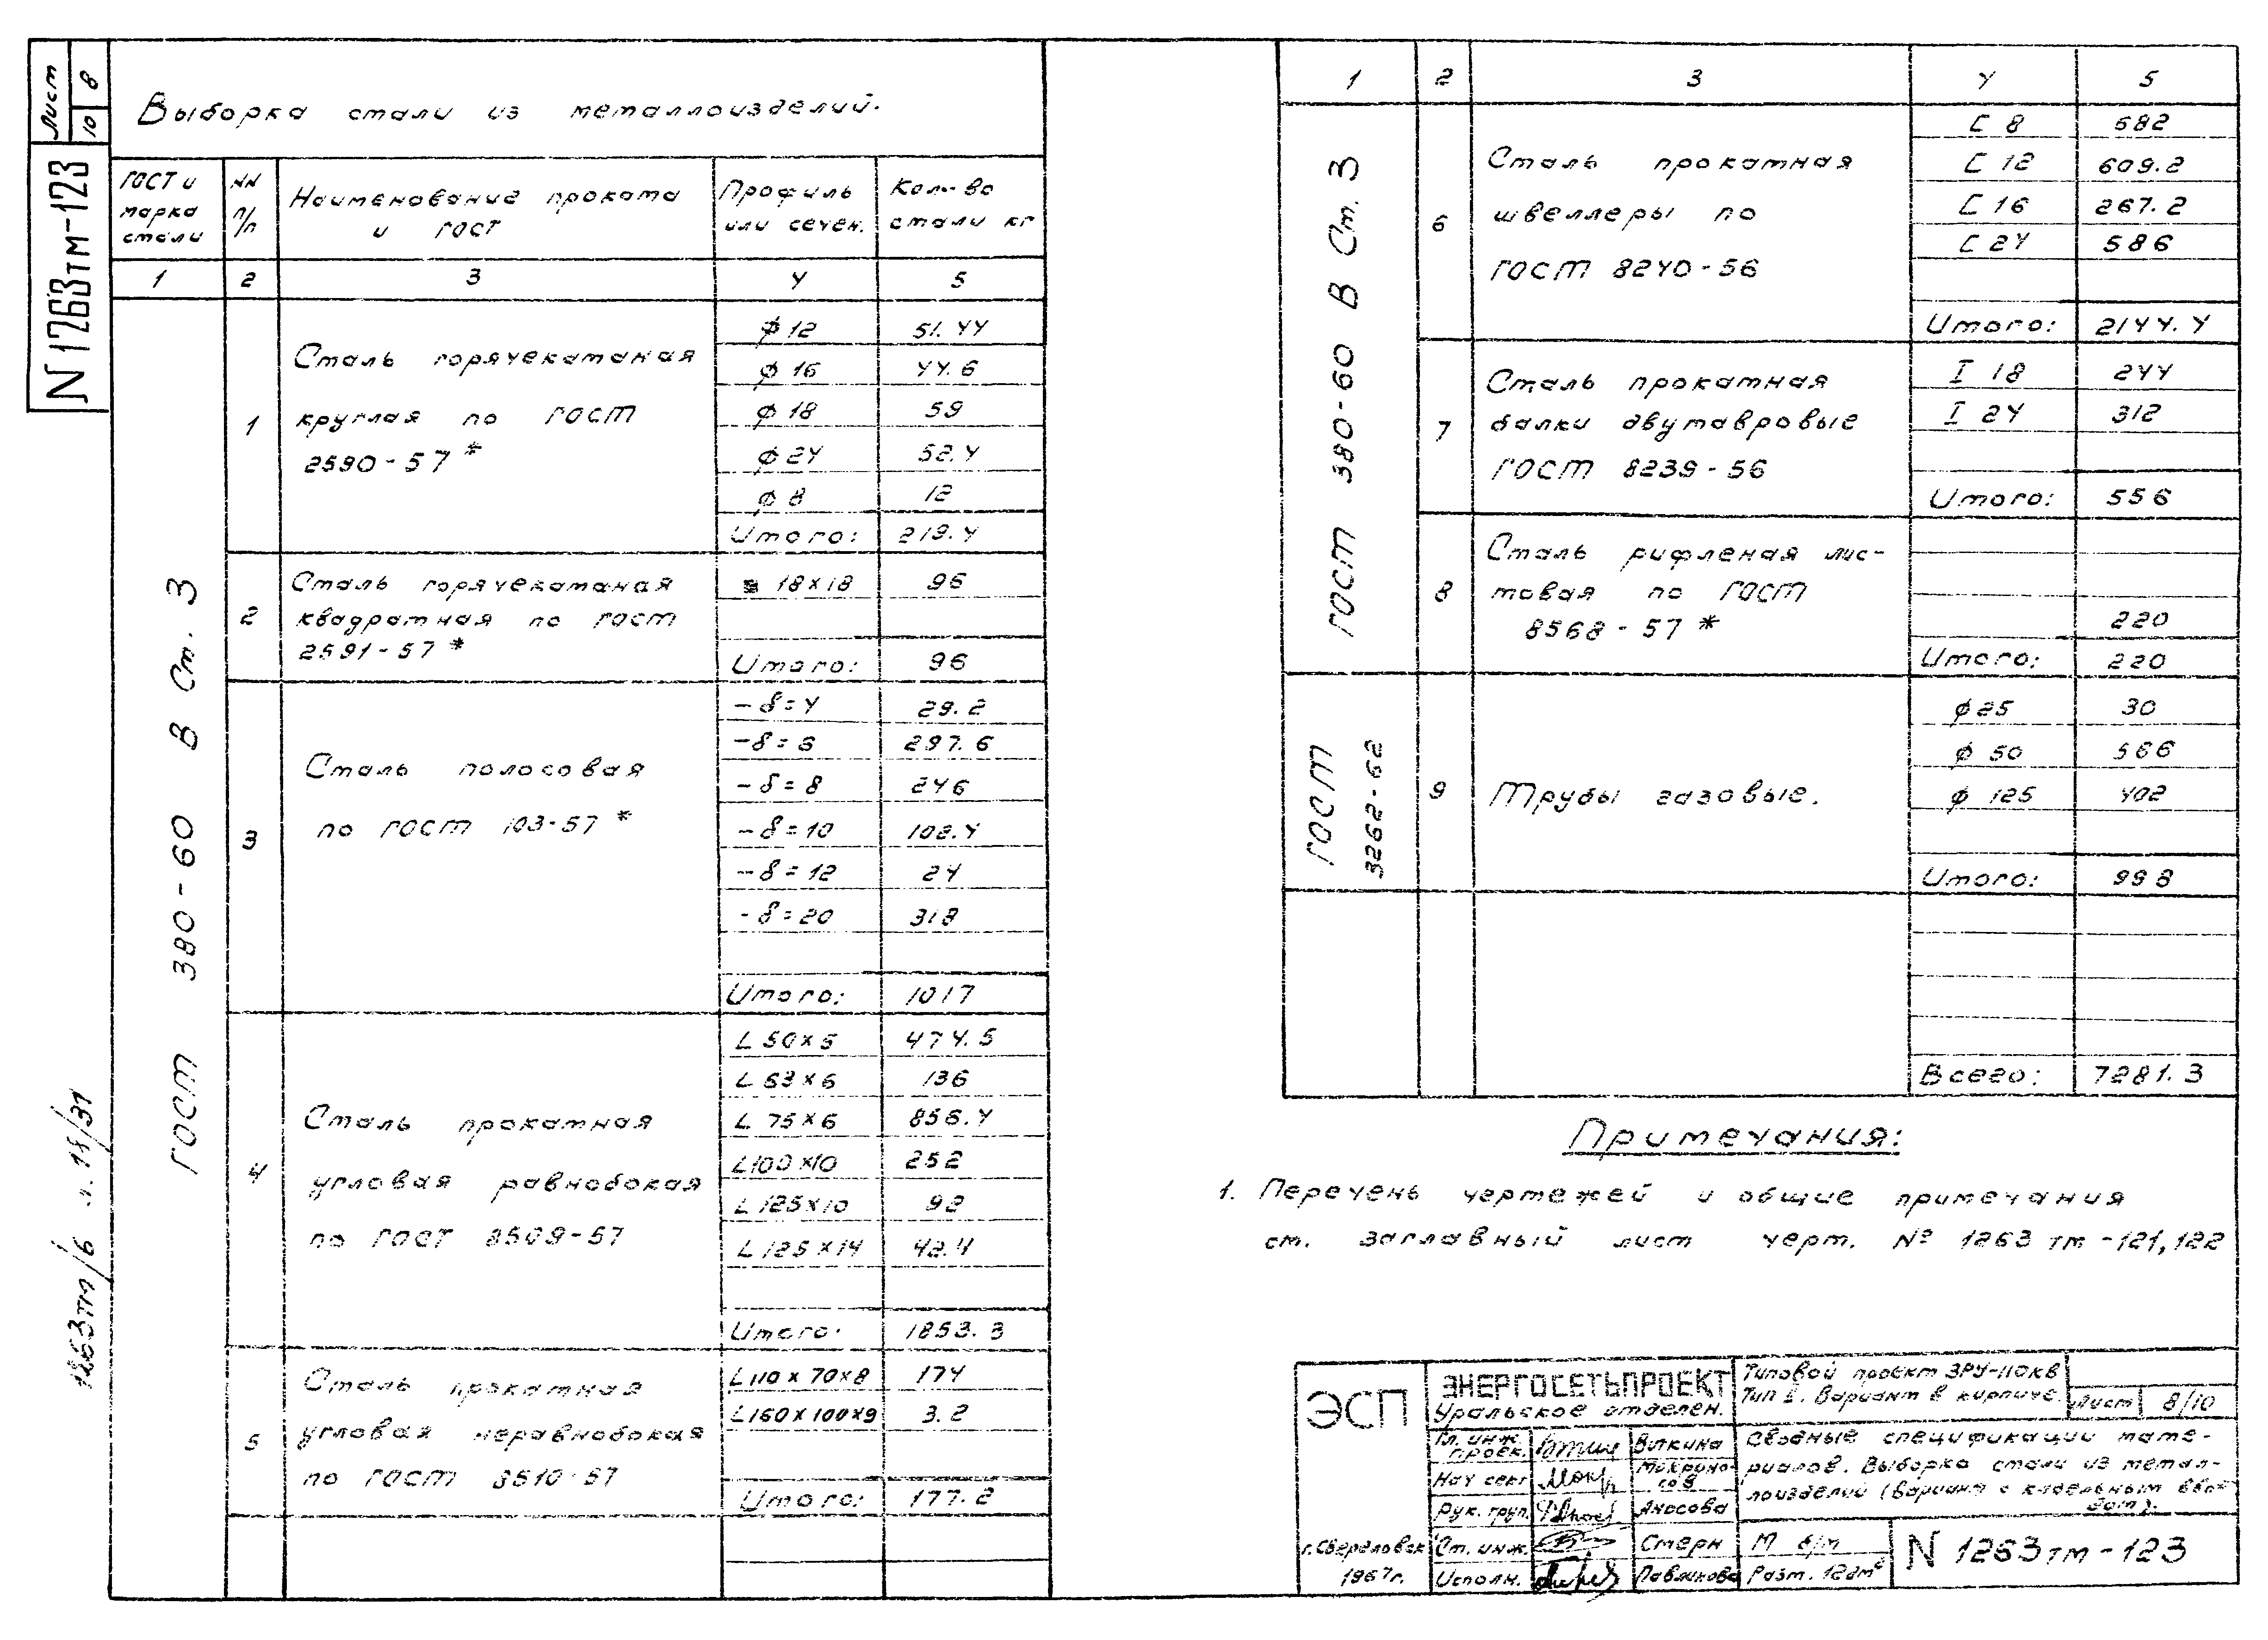 Лист
8
10
N 1263тм-123
Выборка стали из металлоизделий.
ГОСТ и марка стали
NN п/п
Наименование проката и ГОСТ
Профиль или сечен.
Кол-во стали кг
1 2 3 4 5
ГОСТ 380-60 В Ст. 3
1
Сталь горячекатаная
круглая по ГОСТ
2590-57*
ф 12 51.44
ф 16 44.6
ф 18 59
ф 24 52.4
ф 8 12
Итого: 219.4
2
Сталь горячекатаная
квадратная по ГОСТ
2591-57*
■ 18×18 96
Итого: 96
3
Сталь полосовая
по ГОСТ 103-57*
-δ=4 29.2
-δ=6 297.6
-δ=8 246
-δ=10 102.4
-δ=12 24
-δ=20 318
Итого: 1017
4
Сталь прокатная
угловая равнобокая
по ГОСТ 8509-57
L 50×5 474.5
L 63×6 136
L 75×6 856.4
L100×10 252
L125×10 92
L125×14 42.4
Итого: 1853.3
5
Сталь прокатная
угловая неравнобокая
по ГОСТ 8510-57
L110×70×8 174
L160×100×9 3.2
Итого: 177.2
1263тм/6 л. 18/31
1 2 3 4 5
ГОСТ 380-60 В Ст. 3
6
Сталь прокатная
швеллеры по
ГОСТ 8240-56
[ 8 682
[ 12 609.2
[ 16 267.2
[ 24 586
Итого: 2144.4
7
Сталь прокатная
балки двутавровые
ГОСТ 8239-56
I 18 244
I 24 312
Итого: 556
8
Сталь рифленая лис-
товая по ГОСТ
8568-57*
220
Итого: 220
ГОСТ
3262-62
9
Трубы газовые.
ф 25 30
ф 50 566
ф 125 402
Итого: 998
Всего: 7281.3
Примечания:
1. Перечень чертежей и общие примечания
см. заглавный лист черт. № 1263тм-121,122
ЭСП
г.Свердловск
1967г.
ЭНЕРГОСЕТЬПРОЕКТ
Уральское отделен.
Гл. инж. проек. Виткина
Нач сект
Рук. груп. Аносова
Ст. инж. Стерн
Исполн. Павликова
Типовой проект ЗРУ-110кв
Тип I. Вариант в кирпиче.
Лист 8/10
Сводные спецификации мате-
риалов. Выборка стали из метал-
лоизделий (вариант с кабельным вво-
дом).
М б/м
Разм. 12дм²
N 1263тм-123